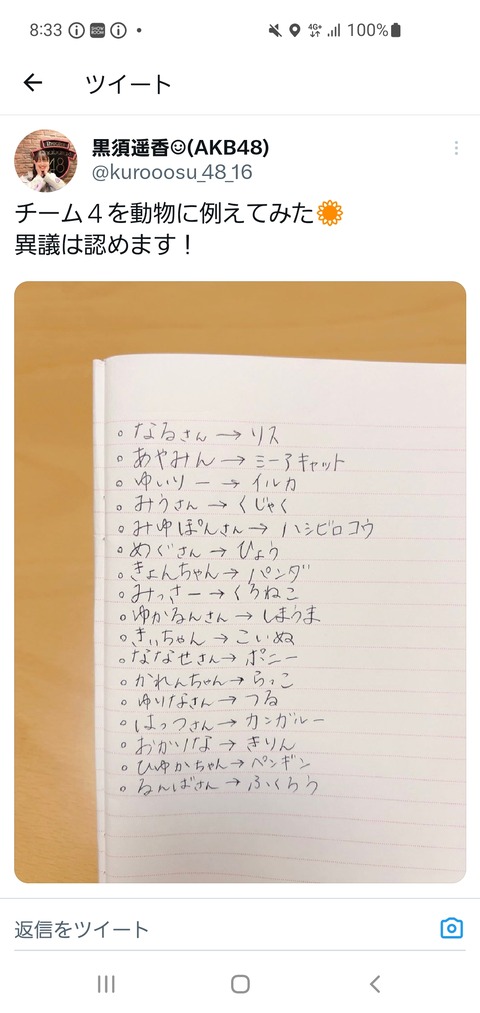 8:33
4G+
100%
ツイート
黒須遥香☺(AKB48)
@kurooosu_48_16
チーム４を動物に例えてみた🌼
異議は認めます！
。なるさん → リス
。あやみん → ミーアキャット
。ゆいりー → イルカ
。みうさん → くじゃく
。みゆぽんさん → ハシビロコウ
。めぐさん → ひょう
。きょんちゃん → パンダ
。みっさー → くろねこ
。ゆかるんさん → しまうま
。きぃちゃん → こいぬ
。ななせさん → ポニー
。かれんちゃん → らっこ
。ゆりなさん → つる
。はっつさん → カンガルー
。おかりな → きりん
。ひゆかちゃん → ペンギン
。るんばさん → ふくろう
返信をツイート